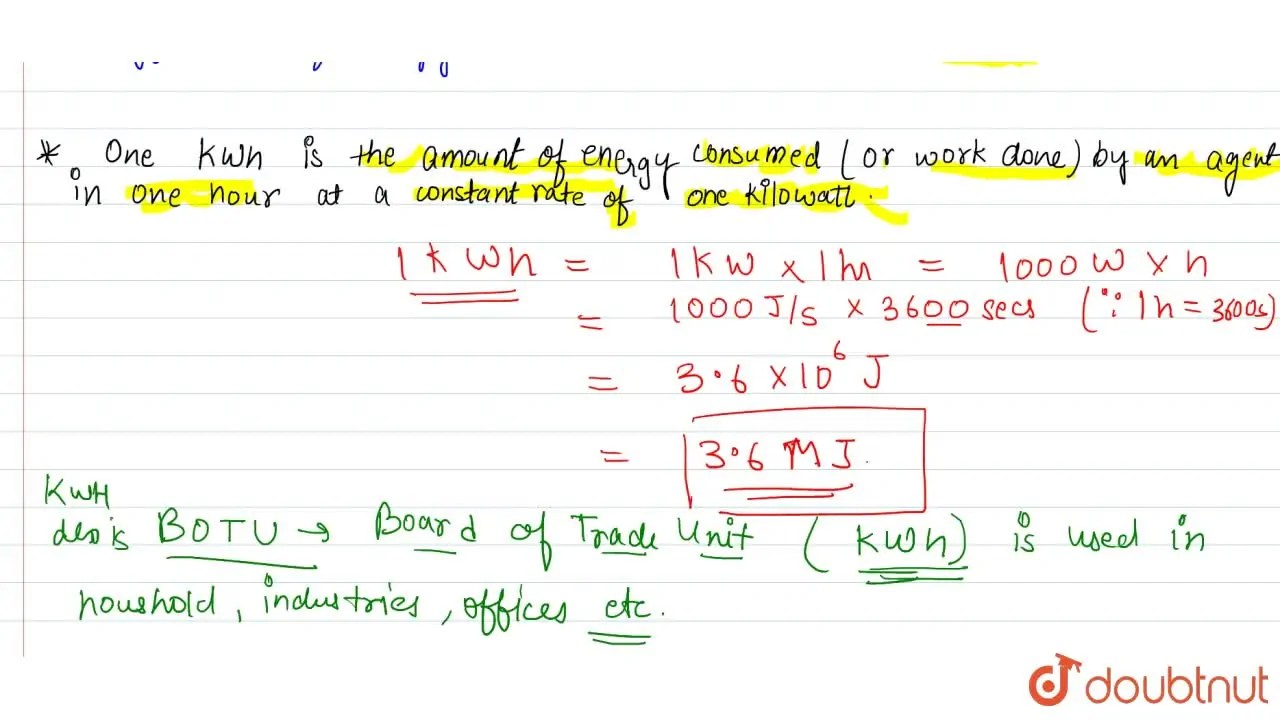 * One kWh is the amount of energy consumed (or work done) by an agent
in one hour at a constant rate of one kilowatt.
1 k Wh = 1 KW x 1 hr = 1000 W x h
= 1000 J/s x 3600 secs (∵ 1h = 3600s)
= 3.6 x 10⁶ J
= 3.6 MJ.
KWH
is BOTU → Board of Trade Unit (kWh) is used in
houshold, industries, offices etc.
doubtnut